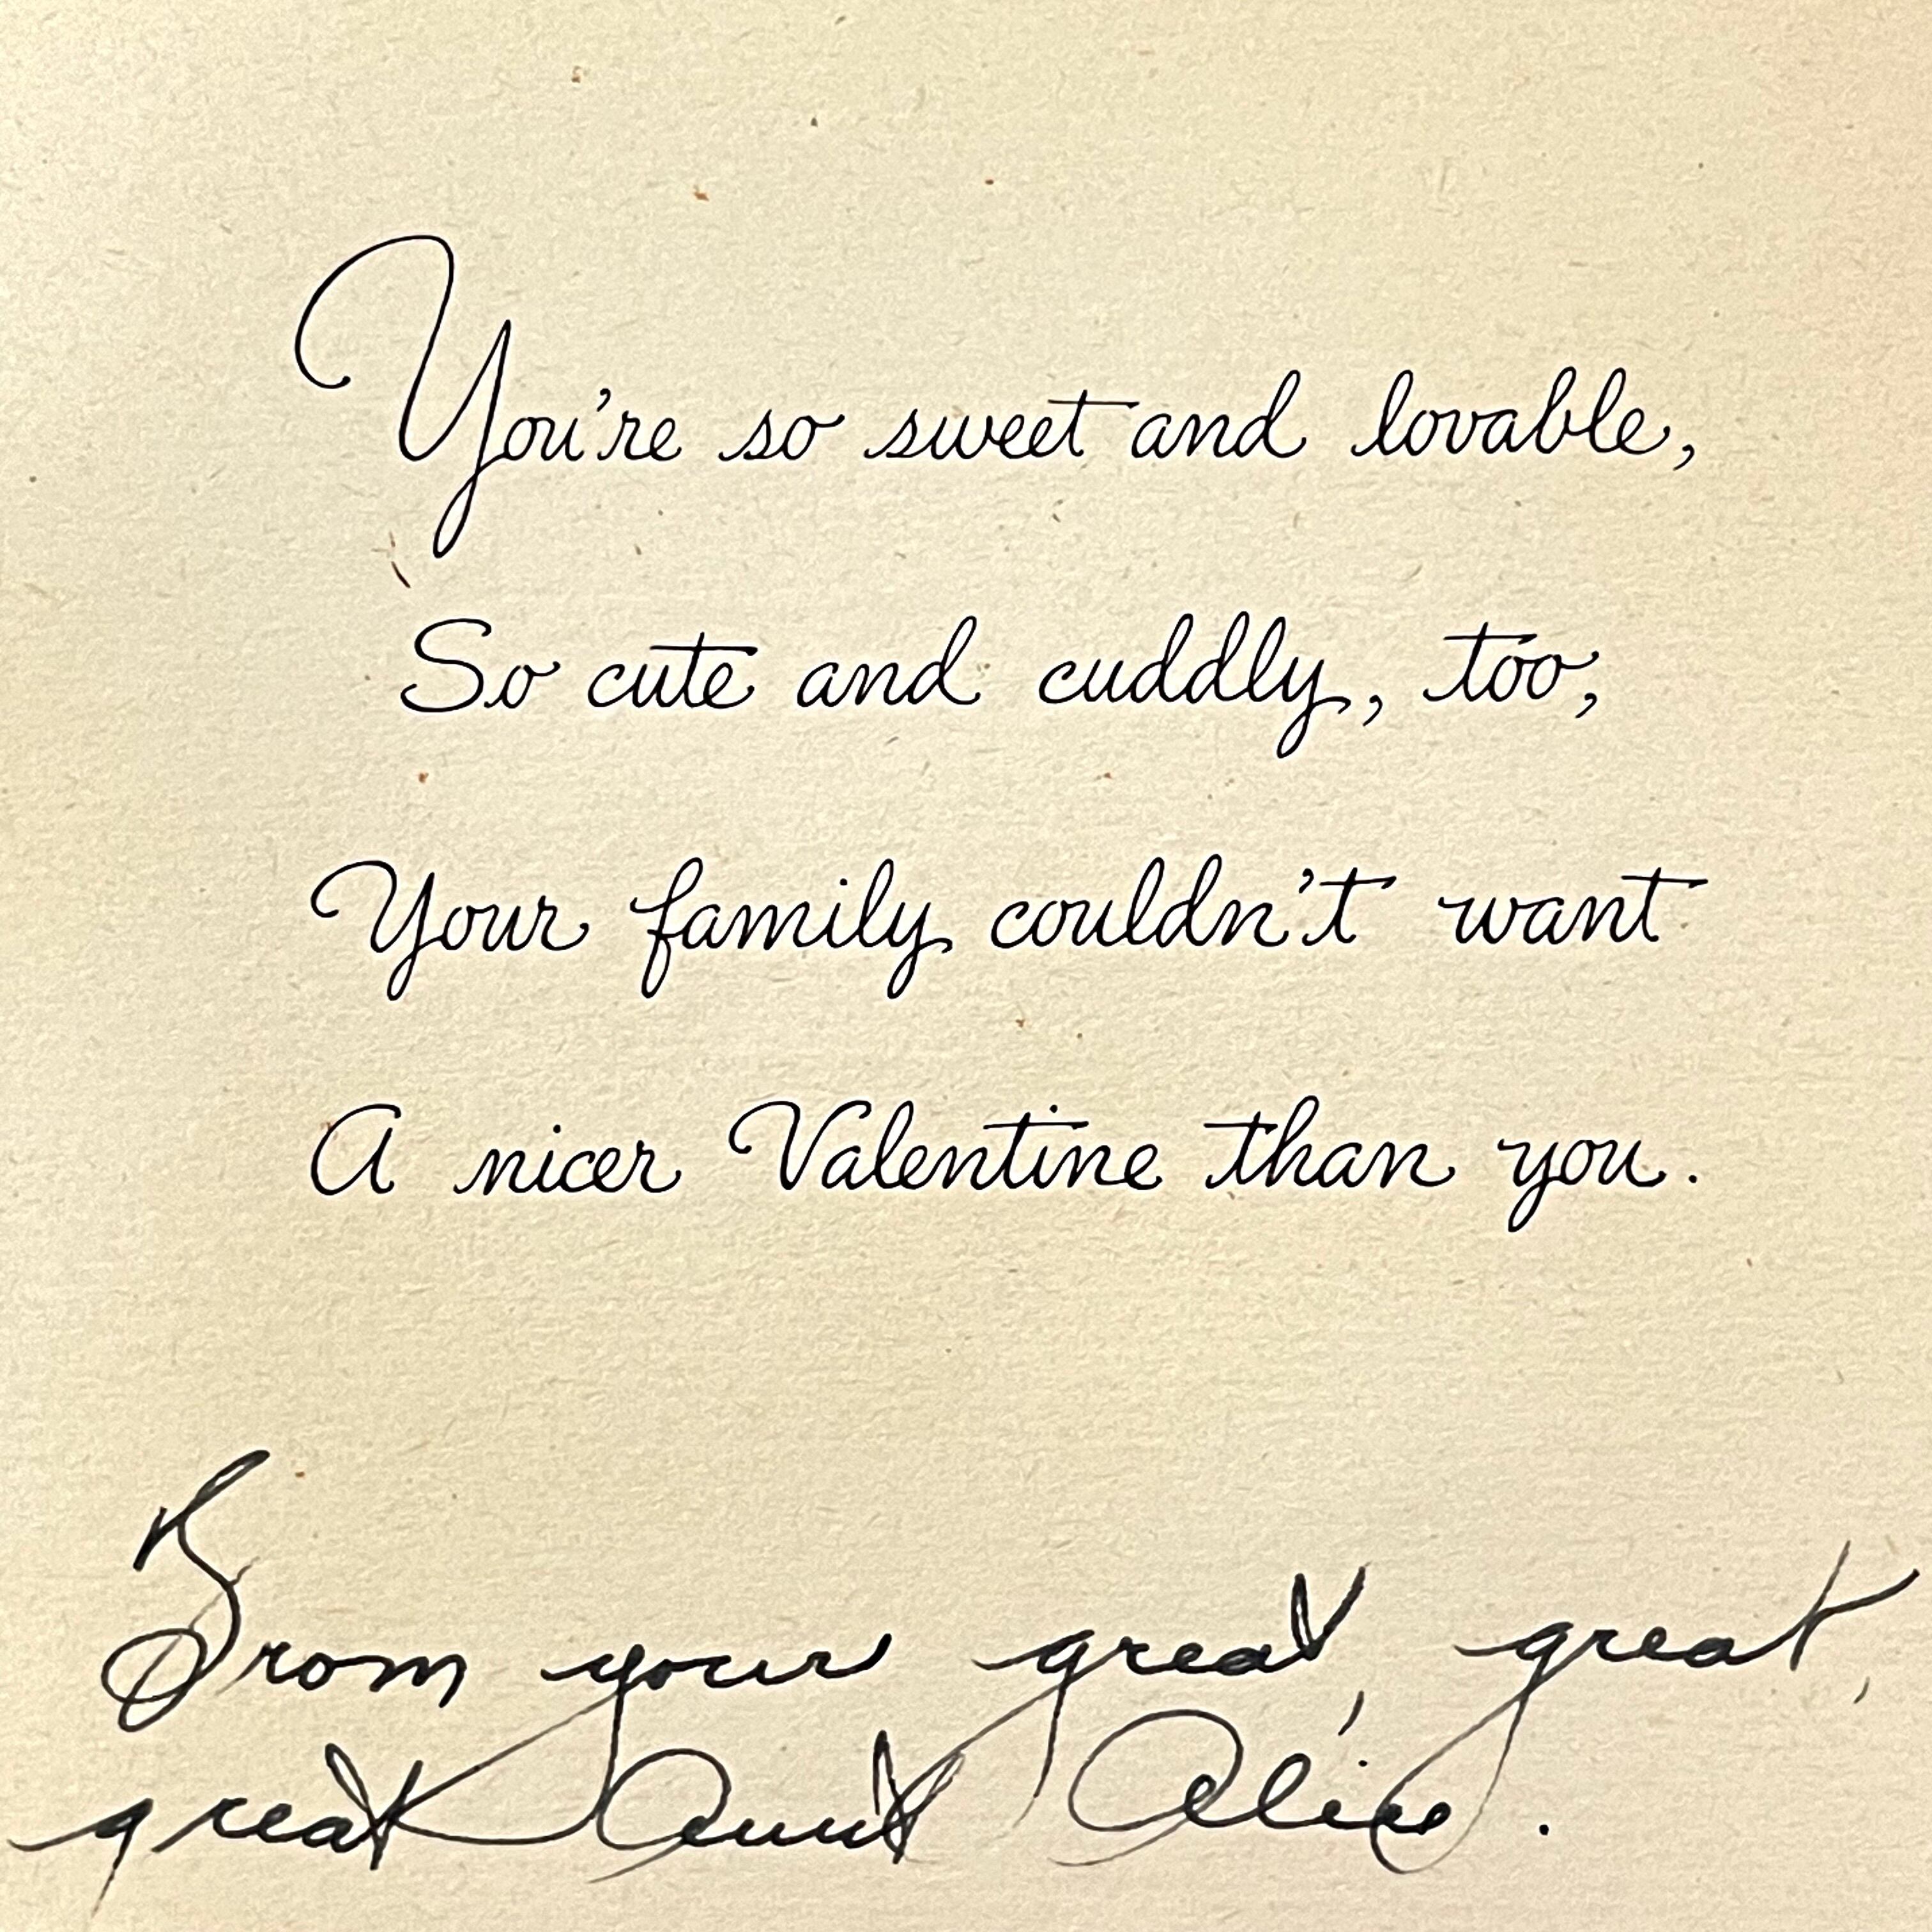 You're so sweet and lovable,
So cute and cuddly, too,
Your family couldn't want
A nicer Valentine than you.
From your great, great,
great Aunt Alice.